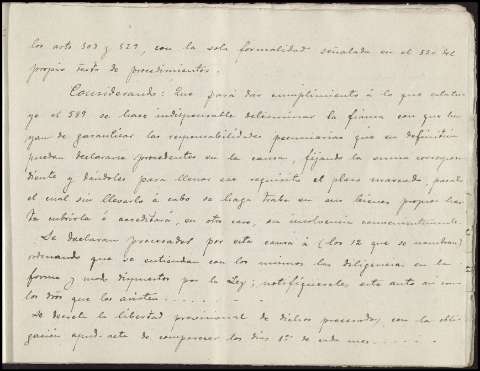 los arts 503 y 529, con la sola formalidad señalada en el 530 del
propio texto de procedimientos.
Considerando: Que para dar cumplimiento á lo que estatu-
ye el 589 se hace indispensable determinar la fianza con que ha-
yan de garantizar las responsabilidades pecuniarias que en definitiva
puedan declararse procedentes en la causa, fijando la suma correspon-
diente y dándoles para llenar ese requisito el plazo marcado, pasado
el cual sin llevarlo á cabo se haga traba en sus bienes propios has-
ta cubrirla ó acreditará, en otro caso, su insolvencia
Se declaran procesados por esta causa á (los 12 que se nombran)
ordenando que se entiendan con los mismos las diligencias en la
forma y modo dispuestos por la Ley; notifíqueseles este auto
los dros que los asisten . . . . . . .
Se decreta la libertad provisional de dichos procesados, con la obli-
gación apud-acta de comparecer los dias 1º de cada mes . . . . .